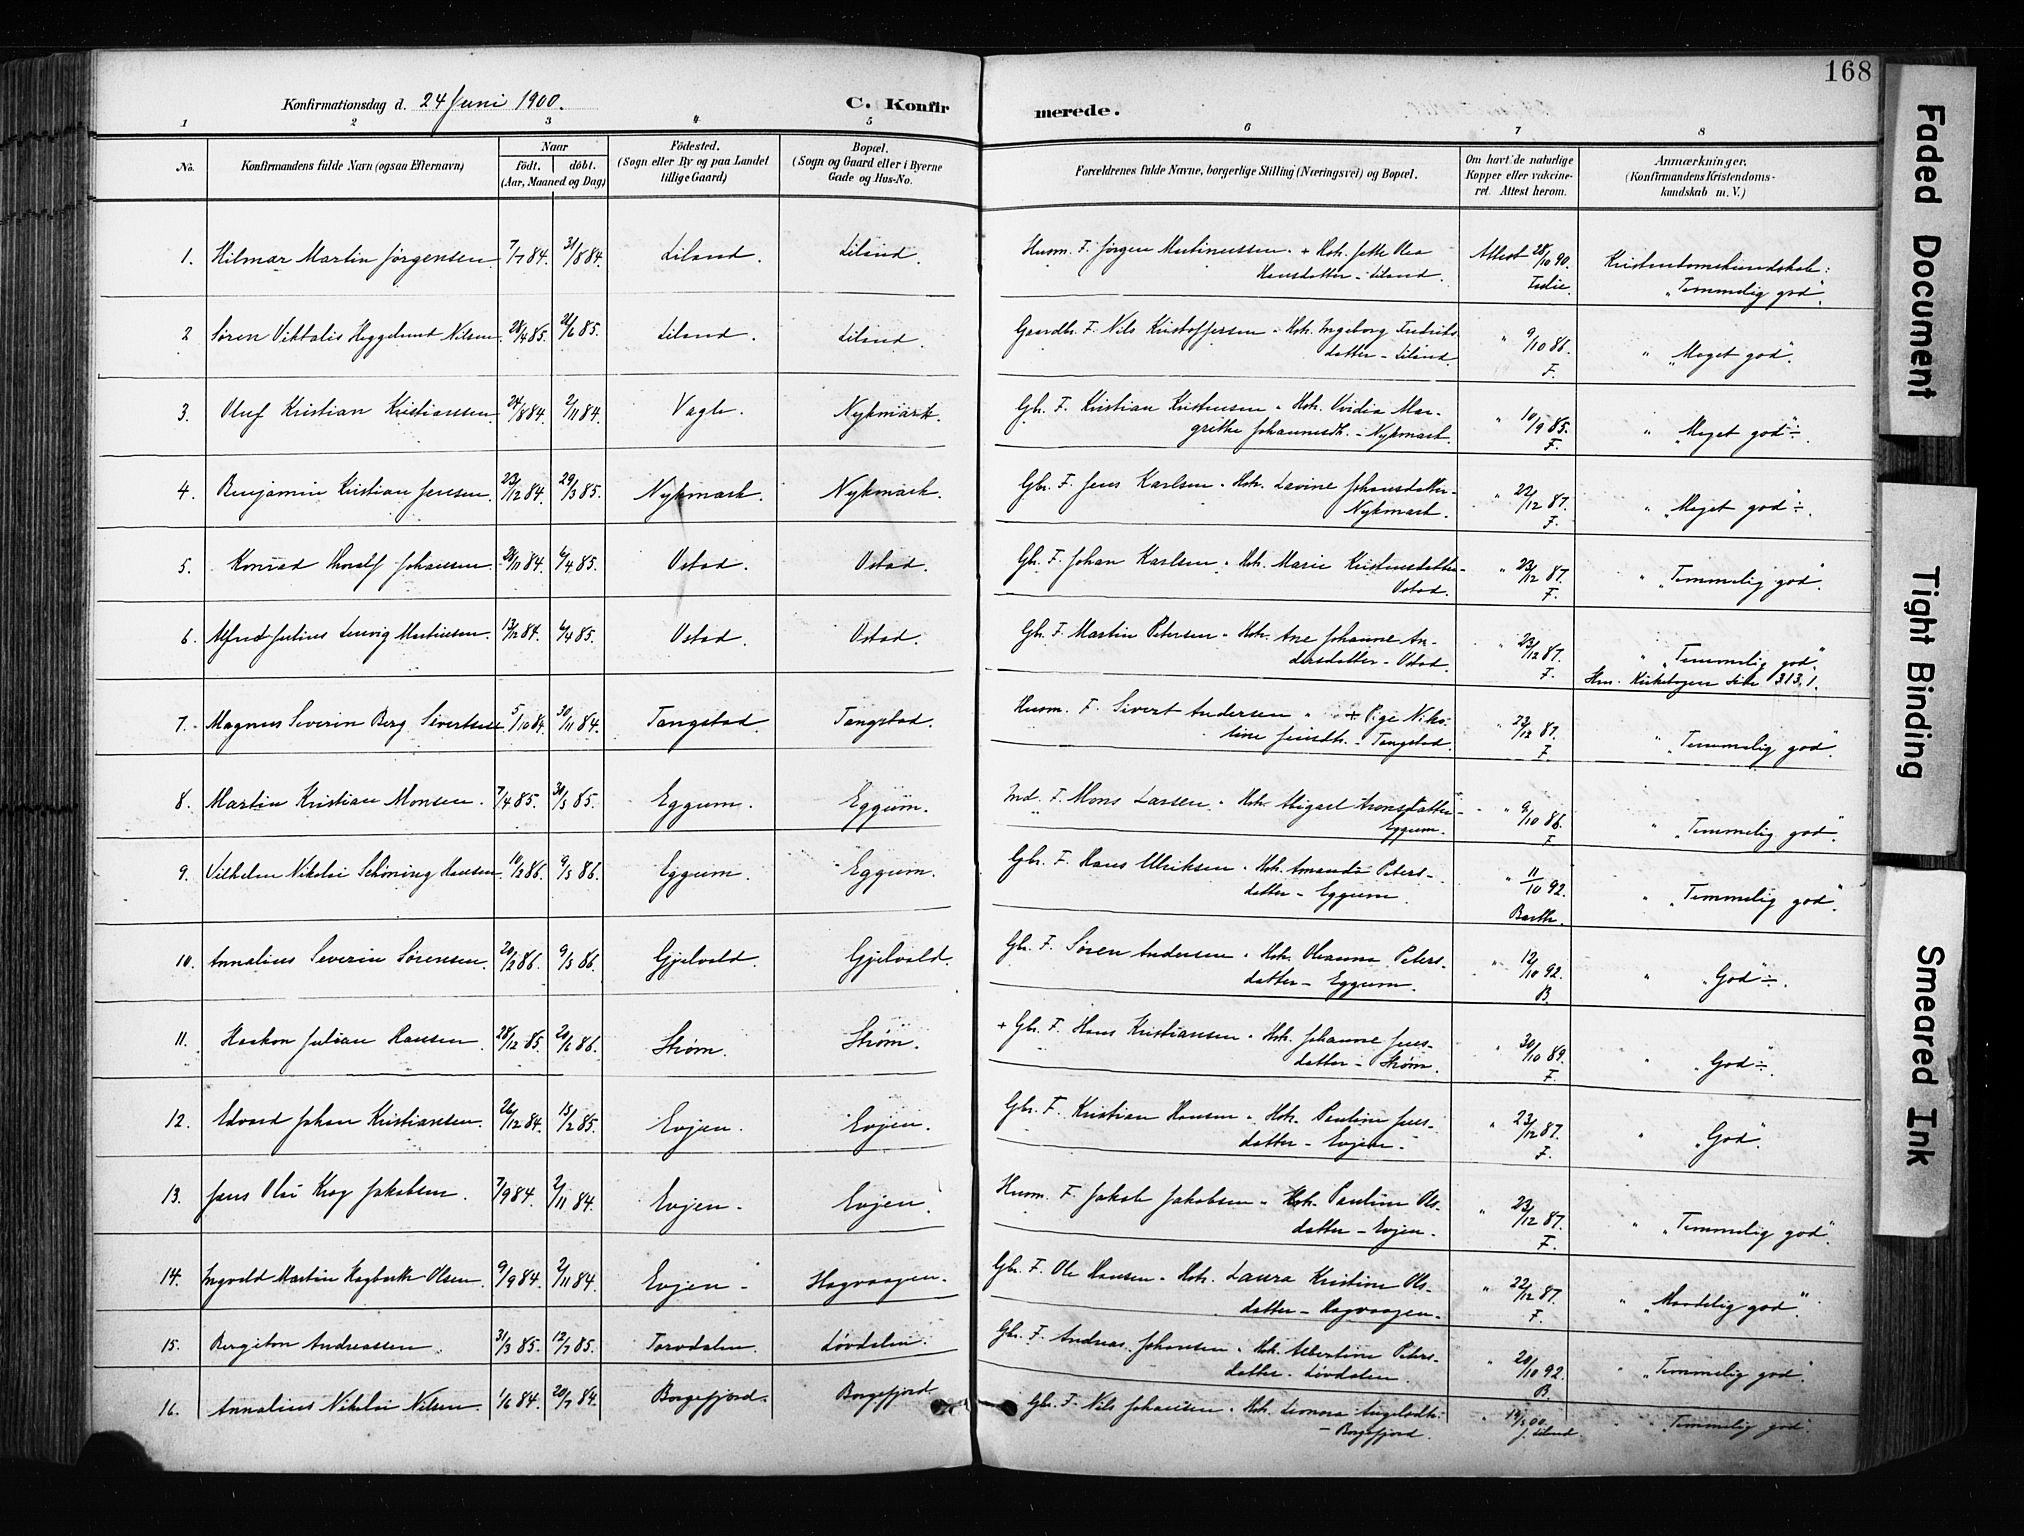 168
Konfirmationsdag d. 24 Juni 1900.
C. Konfirmerede.
1 2 3 4 5 6 7 8
No.
Konfirmandens fulde Navn (ogsaa Efternavn)
Naar
födt. döbt.
(Aar, Maaned og Dag)
Födested.
(Sogn eller By og paa Landet
tillige Gaard)
Bopæl.
(Sogn og Gaard eller i Byerne
Gade og Hus-No.
Forældrenes fulde Navne, borgerlige Stilling (Næringsvei) og Bopæl.
Om havt de naturlige
Kopper eller vakcine-
ret. Attest herom.
Anmærkninger.
(Konfirmandens Kristendoms-
kundskab m. V.)
1. Hilmar Martin Jørgensen. 7/7 84. 31/8 84. Liland. Liland. Husm. F. Jørgen Martinussen. + Hstr. Jette Olea Attest 28/10 90. Kristendomskundskab:
Hansdatter - Liland. "Temmelig god".
2 Søren Viktalis Heggelund Nilsen. 28/4 85. 21/6 85. Liland. Liland. Gaardbr. F. Nils Kristoffersen " Hstr. Ingeborg Fredriks- " 9/10 86. " "Meget god".
datter - Liland F.
3. Oluf Kristian Kristianssen 24/8 84. 2/11 84. Vagle. Nykmark. Gbr. F. Kristian Kristensen " Hstr. Ovidia Mar- " 10/9 85. " "Meget god"÷.
grethe Johannesdt. - Nykmark. F.
4. Benjamin Kristian Jensen. 23/12 84. 29/3 85. Nykmark. Nykmark. Gbr. F. Jens Karlsen " Hstr. Lavine Johansdatter- " 22/12 87. " "Meget god"÷.
Nykmark. F.
5. Konrad Thoralf Johansen. 28/11 84. 6/4 85. Ostad. Ostad. Gb. F. Johan Karlsen " Hstr. Marie Kristensdatter- " 23/12 87. " "Temmelig god".
Ostad. F.
6. Alfred Julius Ludvig Martinsen. 13/12 84. 6/4 85. Ostad. Ostad. Gbr. F. Martin Petersen " Hstr. Ane Johanne An- " 23/12 87. " "Temmelig god".
dersdatter - Ostad. F. Kirkebogen 313.1.
7. Magnus Severin Berg Sivertsen 5/10 84. 30/11 84. Tangstad. Tangstad. Husm. F. Sivert Andersen " + Pige Niko- " 22/12 87. " "Temmelig god".
line Jensdt. - Tangstad. F.
8. Martin Kristian Monsen. 7/4 85. 31/5 85. Eggum. Eggum. Ind. F. Mons Larsen " Hstr. Abigael Aronsdatter- " 9/10 86. " "Temmelig god".
Eggum. F
9. Vilhelm Nikolai Schøning Hansen. 10/2 86. 9/5 86. Eggum. Eggum. Gbr. F. Hans Ulriksen " Hstr. Amanda Peters- " 11/10 92. " "Temmelig god".
datter - Eggum. Barth.
10. Annalius Severin Sørensen. 20/2 86. 9/5 86. Gjelvold. Gjelvold. Gbr. F. Søren Andersen " Hstr. Oleanna Peters- " 12/10 92. " "God"÷.
datter - Eggum. B.
11. Haakon Julian Hansen. 28/12 85. 20/6 86. Strøm. Strøm. + Gbr. F. Hans Kristiansen " Hstr. Johanne Jens- " 30/10 89. " "God"÷.
datter - Strøm. F.
12. Edvard Johan Kristiansen. 26/12 84. 15/2 85. Evjen. Evjen. Gbr. F. Kristian Hansen " Hstr. Pauline Jens- " 23/12 87. " "God".
datter - Evjen - F.
13. Jens Olai Krog Jakobsen. 7/9 84. 2/11 84. Evjen - Evjen. Husm. F. Jakob Jakobsen " Hstr. Pauline Ols- " 23/12 87. " "Temmelig god".
datter - Evjen. F.
14. Ingvald Martin Hagbarth Olsen. 9/9 84. 2/11 84. Evjen - Hagvaagen. Gbr. F. Ole Hansen " Hstr. Laura Kristine Ols- " 22/12 87. " "Maadelig god".
datter - Hagvaagen. F.
15. Bergiton Andreassen. 31/3 85. 12/7 85. Torvdalen. Løvdalen. Gbr. F. Andreas Johansen " Hstr. Albertine Peters- " 20/10 92. " "Temmelig god".
datter - Løvdalen. B.
16. Annalius Nikolai Nilsen. 1/6 84. 20/7 84. Borgefjord. Borgefjord Gbr. F. Nils Johansen " Hstr. Leonora " "Temmelig god".
- Borgefjord.
Faded Document
Tight Binding
Smeared Ink